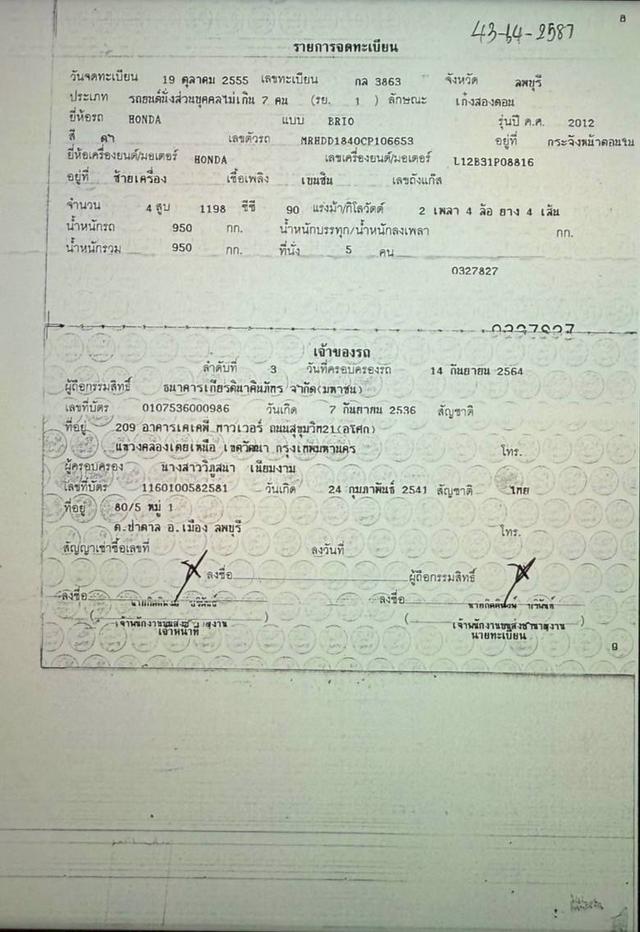 8
43-14-2587
รายการจดทะเบียน
วันจดทะเบียน 19 ตุลาคม 2555 เลขทะเบียน กล 3863 จังหวัด ลพบุรี
ประเภท รถยนต์นั่งส่วนบุคคลไม่เกิน 7 คน (รย. 1 ) ลักษณะ เก๋งสองตอน
ยี่ห้อรถ HONDA แบบ BRIO รุ่นปี ค.ศ. 2012
สี ดำ เลขตัวรถ MRHDD1840CP106653 อยู่ที่ กระจังหน้าตอนใน
ยี่ห้อเครื่องยนต์/มอเตอร์ HONDA เลขเครื่องยนต์/มอเตอร์ L12B31P08816
อยู่ที่ ซ้ายเครื่อง เชื้อเพลิง เบนซิน เลขถังแก๊ส
จำนวน 4 สูบ 1198 ซีซี 90 แรงม้า/กิโลวัตต์ 2 เพลา 4 ล้อ ยาง 4 เส้น
น้ำหนักรถ 950 กก. น้ำหนักบรรทุก/น้ำหนักลงเพลา กก.
น้ำหนักรวม 950 กก. ที่นั่ง 5 คน
0327827
0327827
เจ้าของรถ
ลำดับที่ 3 วันที่ครอบครองรถ 14 กันยายน 2564
ผู้ถือกรรมสิทธิ์ ธนาคารเกียรตินาคินภัทร จำกัด(มหาชน)
เลขที่บัตร 0107536000986 วันเกิด 7 กันยายน 2536 สัญชาติ
ที่อยู่ 209 อาคารเคเคพี ทาวเวอร์ ถนนสุขุมวิท21(อโศก)
แขวงคลองเตยเหนือ เขตวัฒนา กรุงเทพมหานคร โทร.
ผู้ครอบครอง นางสาววิภูสนา เนียมงาม
เลขที่บัตร 1160100582581 วันเกิด 24 กุมภาพันธ์ 2541 สัญชาติ ไทย
ที่อยู่ 80/5 หมู่ 1
ต.ป่าตาล อ.เมือง ลพบุรี โทร.
สัญญาเช่าซื้อเลขที่ ลงวันที่
ลงชื่อ ผู้ถือกรรมสิทธิ์
ลงชื่อ ลงชื่อ
เจ้าพนักงานขนส่งชำนาญงาน เจ้าพนักงานขนส่งชำนาญงาน
เจ้าหน้าที่ นายทะเบียน
9